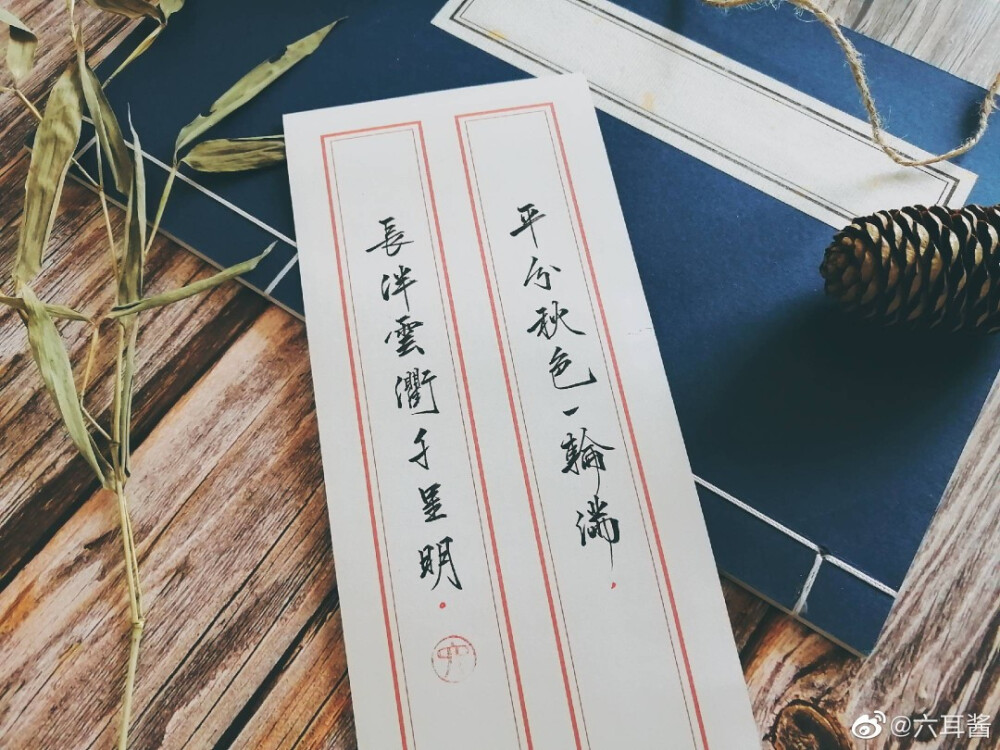 平分秋色一輪滿，
長伴雲衢千里明。
@六耳酱